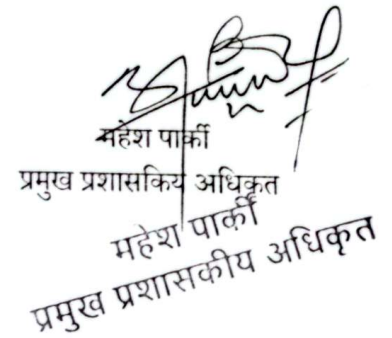 महेश पार्की
प्रमुख प्रशासकिय अधिकृत
महेश पार्की
प्रमुख प्रशासकीय अधिकृत